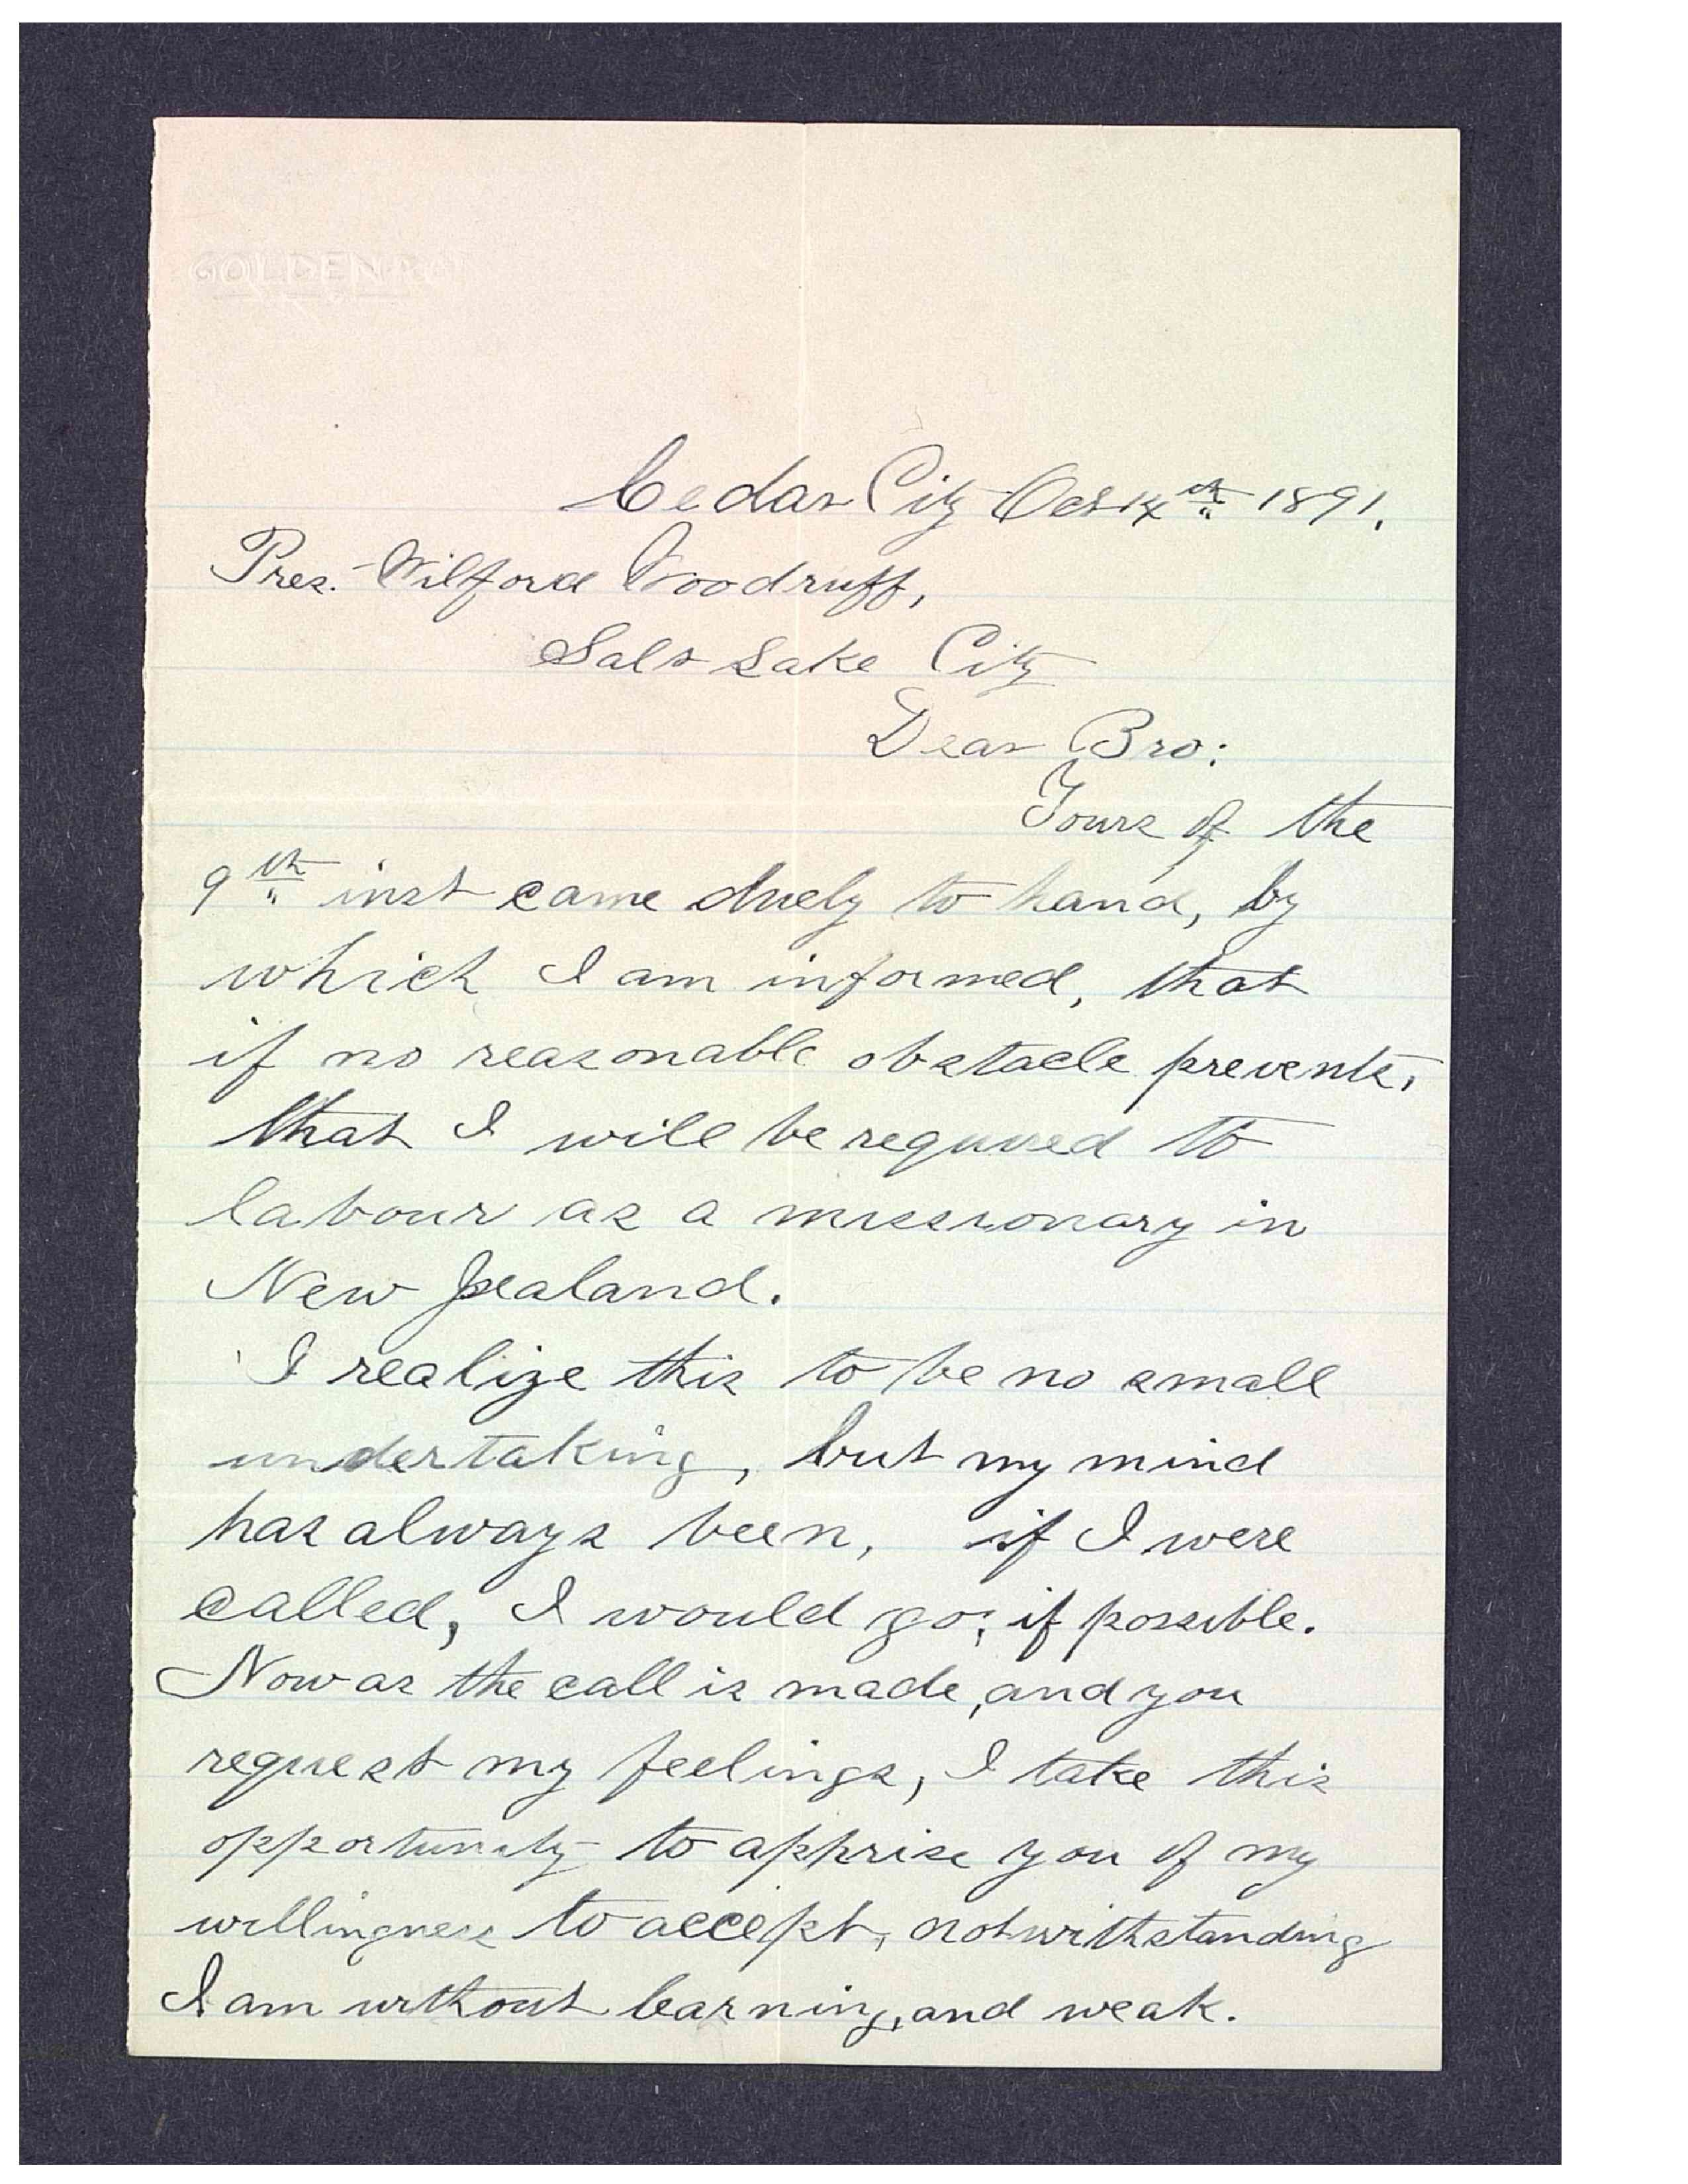 GOLDENROD
Cedar City Oct 14th 1891.
Pres. Wilford Woodruff,
Salt Lake City
Dear Bro:
Yours of the
9th inst came duely to hand, by
which I am informed, that
if no reasonable obstacle prevents,
that I will be requured to
labour as a missionary in
New Zealand.
I realize this to be no small
undertaking, but my mind
has always been, if I were
called, I would go, if possible.
Now as the call is made, and you
request my feelings, I take this
opportunity to apprise you of my
willingness to accept, notwithstanding
I am without learning, and weak.